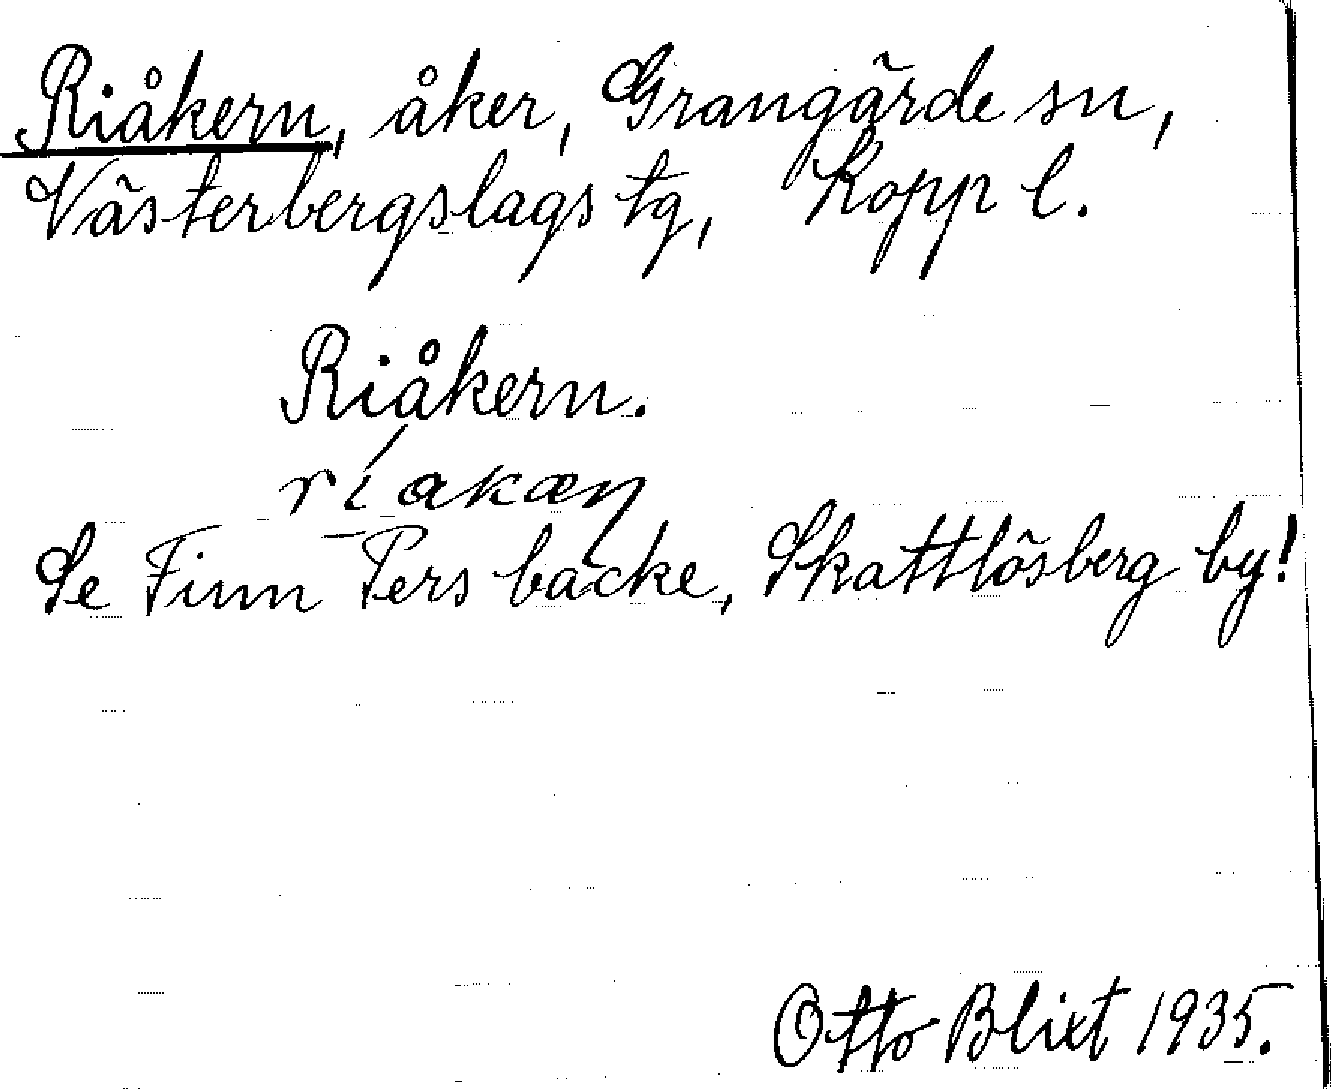 Riåkern, åker, Grangärde sn,
Västerbergslags tg, Kopp l.
Riåkern.
Se Finn Pers backe, Skattlösberg by!
Otto Blixt 1935.